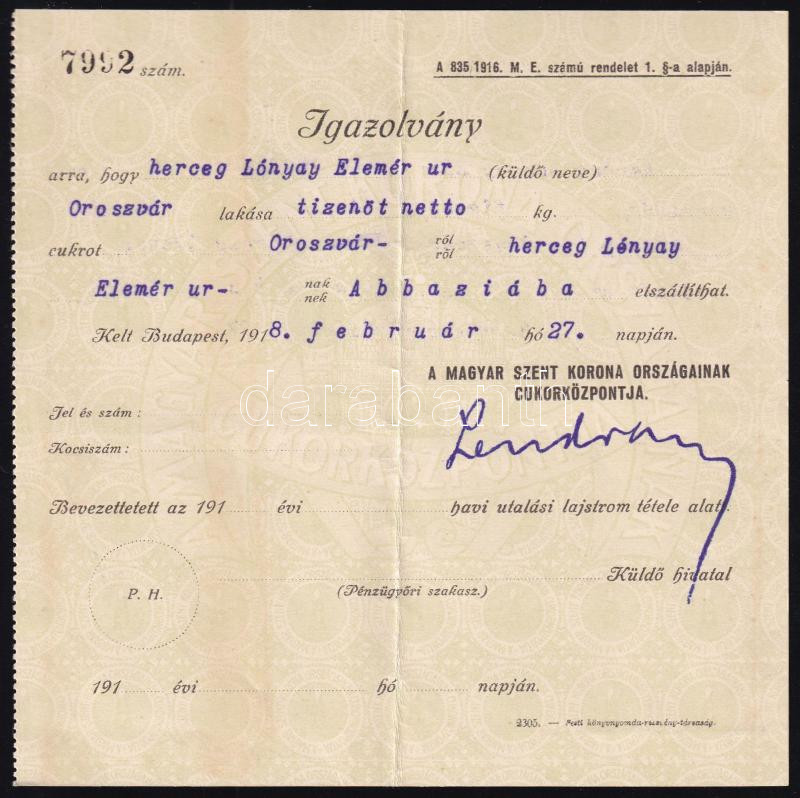 7992 szám.
A 835/1916. M. E. számú rendelet 1. §-a alapján.
Igazolvány
arra, hogy herceg Lónyay Elemér ur (küldő neve)
Oroszvár lakása tizenöt netto kg.
cukrot Oroszvár- ról ről herceg Lónyay
Elemér ur- nak nek Abbaziába elszállíthat.
Kelt Budapest, 1918. február hó 27. napján.
A MAGYAR SZENT KORONA ORSZÁGAINAK
CUKORKÖZPONTJA.
darabanth
Jel és szám:
Kocsiszám:
Bevezettetett az 191 évi havi utalási lajstrom tétele alatt.
Küldő hivatal
P. H.
(Pénzügyőri szakasz.)
191 évi hó napján.
2305. — Pesti könyvnyomda-részvény-társaság.